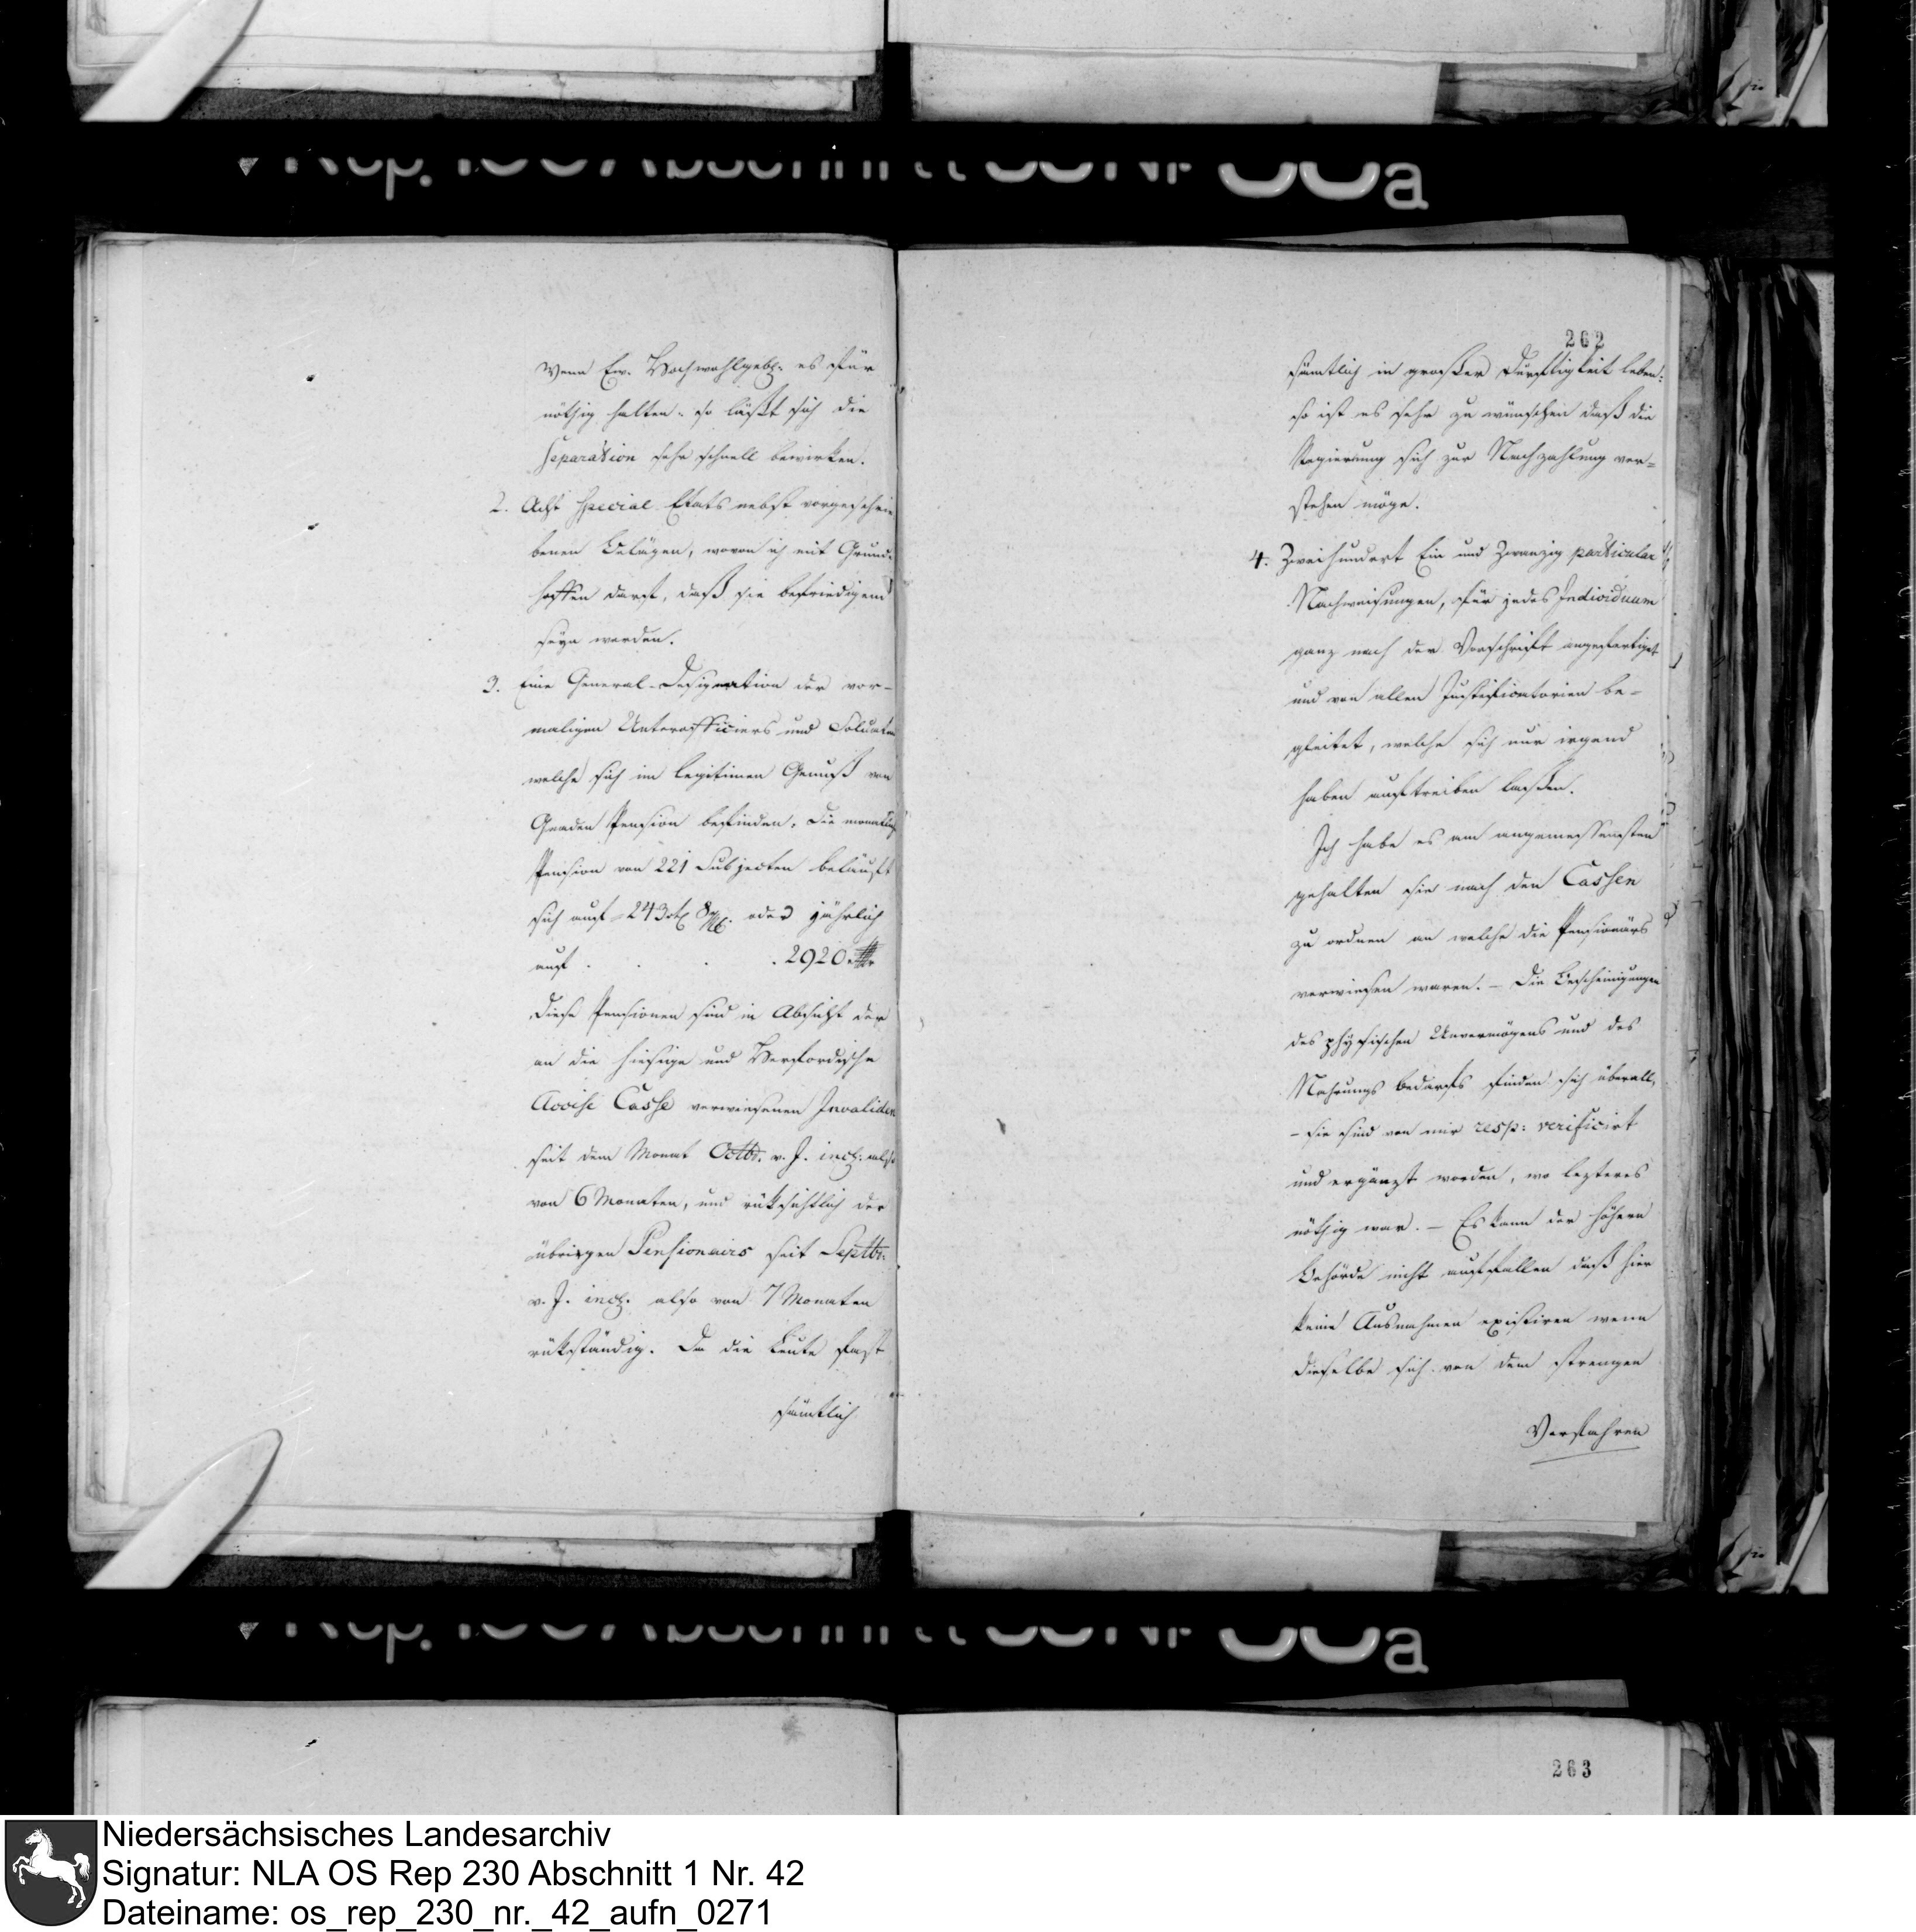 Wenn Ew. Hochwohlgeb. es für
nöthig halten, so läßt sich die
Separation sehr schnell bewirken.
2. Acht Special Etats nebst vorgeschrie
benen Belägen, wovon ich mit Grund
hoffen darf, daß sie befriedigend
seyn werden.
3. Eine General-Designation der vor-
maligen Unterofficiers und Soldaten
welche sich im legitimen Genuß von
Gnaden Pension befinden, die monatliche
Pension von 221 Subjecten beläuft
sich auf 243 8 oder jährlich
auf . . . . 2920
Diese Pensionen sind in Absicht der
an die hiesige und Herfordische
Accise Casse verwiesenen Invaliden
seit dem Monat Octbr. v. J. incl: also
von 6 Monaten, und rüksichtlich der
übrigen Pensionairs seit Septbr.
v. J. incl. also von 7 Monaten
rükständig. Da die Leute fast
sämtlich
262
sämtlich in großer Dürftigkeit leben:
so ist es sehr zu wünschen daß die
Regierung sich zur Nachzahlung ver=
stehen möge.
4. Zweihundert Ein und Zwanzig particular
Nachweisungen, für jedes Individuum
ganz nach der Vorschrift angefertiget
und von allen Justificatorien be=
gleitet, welche sich nur irgend
haben auftreiben laßen.
Ich habe es am angemessensten
gehalten sie nach den Cassen
zu ordnen an welche die Pensionärs
verwiesen waren. – Die Bescheinigungen
des physischen Unvermögens und des
Nahrungs bedarfs finden sich überall,
– sie sind von mir resp: verificirt
und ergänzt worden, wo lezteres
nöthig war. – Es kann der höhern
Behörde nicht auffallen daß hier
keine Ausnahmen existiren wenn
dieselbe sich von dem strengen
Verfahren
263
Niedersächsisches Landesarchiv
Signatur: NLA OS Rep 230 Abschnitt 1 Nr. 42
Dateiname: os_rep_230_nr._42_aufn_0271